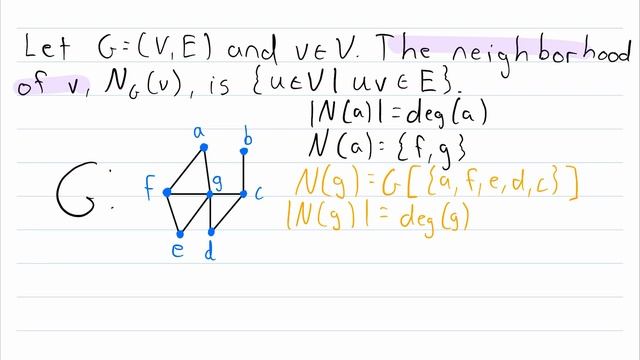 Let G=(V,E) and v∈V. The neighborhood
of v, N_G(v), is {u∈V | uv∈E}.
|N(a)|=deg(a)
N(a)={f,g}
N(g)=G[{a,f,e,d,c}]
|N(g)|=deg(g)
G:
a
b
f
g
c
e
d